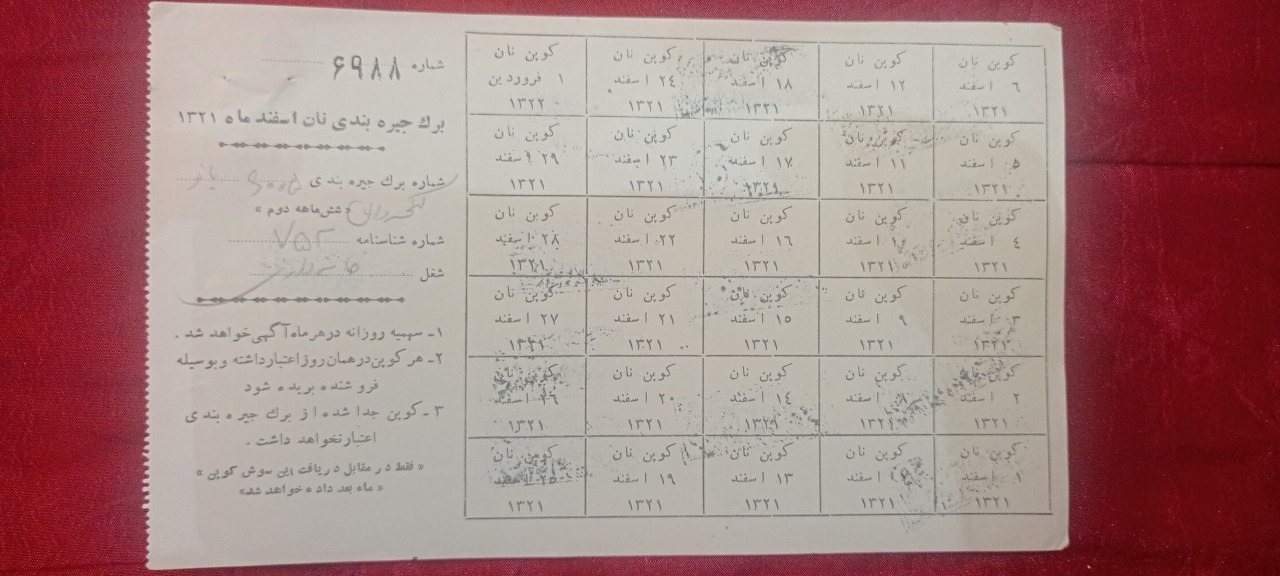 شماره ۶۹۸۸
برگ جیره بندی نان اسفند ماه ۱۳۲۱
شماره برگ جیره بندی
« شش ماهه دوم »
شماره شناسنامه ۷۵۲
شغل
۱ـ سهمیه روزانه در هر ماه آگهی خواهد شد .
۲ـ هر کوپن در همان روز اعتبار داشته و بوسیله
فروشنده بریده شود
۳ ـ کوپن جدا شده از برگ جیره بندی
اعتبار نخواهد داشت .
« فقط در مقابل دریافت این سوش کوپن »
« ماه بعد داده خواهد شد»
کوپن نان کوپن نان کوپن نان کوپن نان کوپن نان
۶ اسفند ۱۲ اسفند ۱۸ اسفند ۲۴ اسفند ۱ فروردین
۱۳۲۱ ۱۳۲۱ ۱۳۲۱ ۱۳۲۱ ۱۳۲۲
کوپن نان کوپن نان کوپن نان کوپن نان کوپن نان
۵ اسفند ۱۱ اسفند ۱۷ اسفند ۲۳ اسفند ۲۹ اسفند
۱۳۲۱ ۱۳۲۱ ۱۳۲۱ ۱۳۲۱ ۱۳۲۱
کوپن نان کوپن نان کوپن نان کوپن نان کوپن نان
۴ اسفند ۱۰ اسفند ۱۶ اسفند ۲۲ اسفند ۲۸ اسفند
۱۳۲۱ ۱۳۲۱ ۱۳۲۱ ۱۳۲۱ ۱۳۲۱
کوپن نان کوپن نان کوپن نان کوپن نان کوپن نان
۳ اسفند ۹ اسفند ۱۵ اسفند ۲۱ اسفند ۲۷ اسفند
۱۳۲۱ ۱۳۲۱ ۱۳۲۱ ۱۳۲۱ ۱۳۲۱
کوپن نان کوپن نان کوپن نان کوپن نان کوپن نان
۲ اسفند ۸ اسفند ۱۴ اسفند ۲۰ اسفند ۲۶ اسفند
۱۳۲۱ ۱۳۲۱ ۱۳۲۱ ۱۳۲۱ ۱۳۲۱
کوپن نان کوپن نان کوپن نان کوپن نان کوپن نان
۱ اسفند ۷ اسفند ۱۳ اسفند ۱۹ اسفند ۲۵ اسفند
۱۳۲۱ ۱۳۲۱ ۱۳۲۱ ۱۳۲۱ ۱۳۲۱